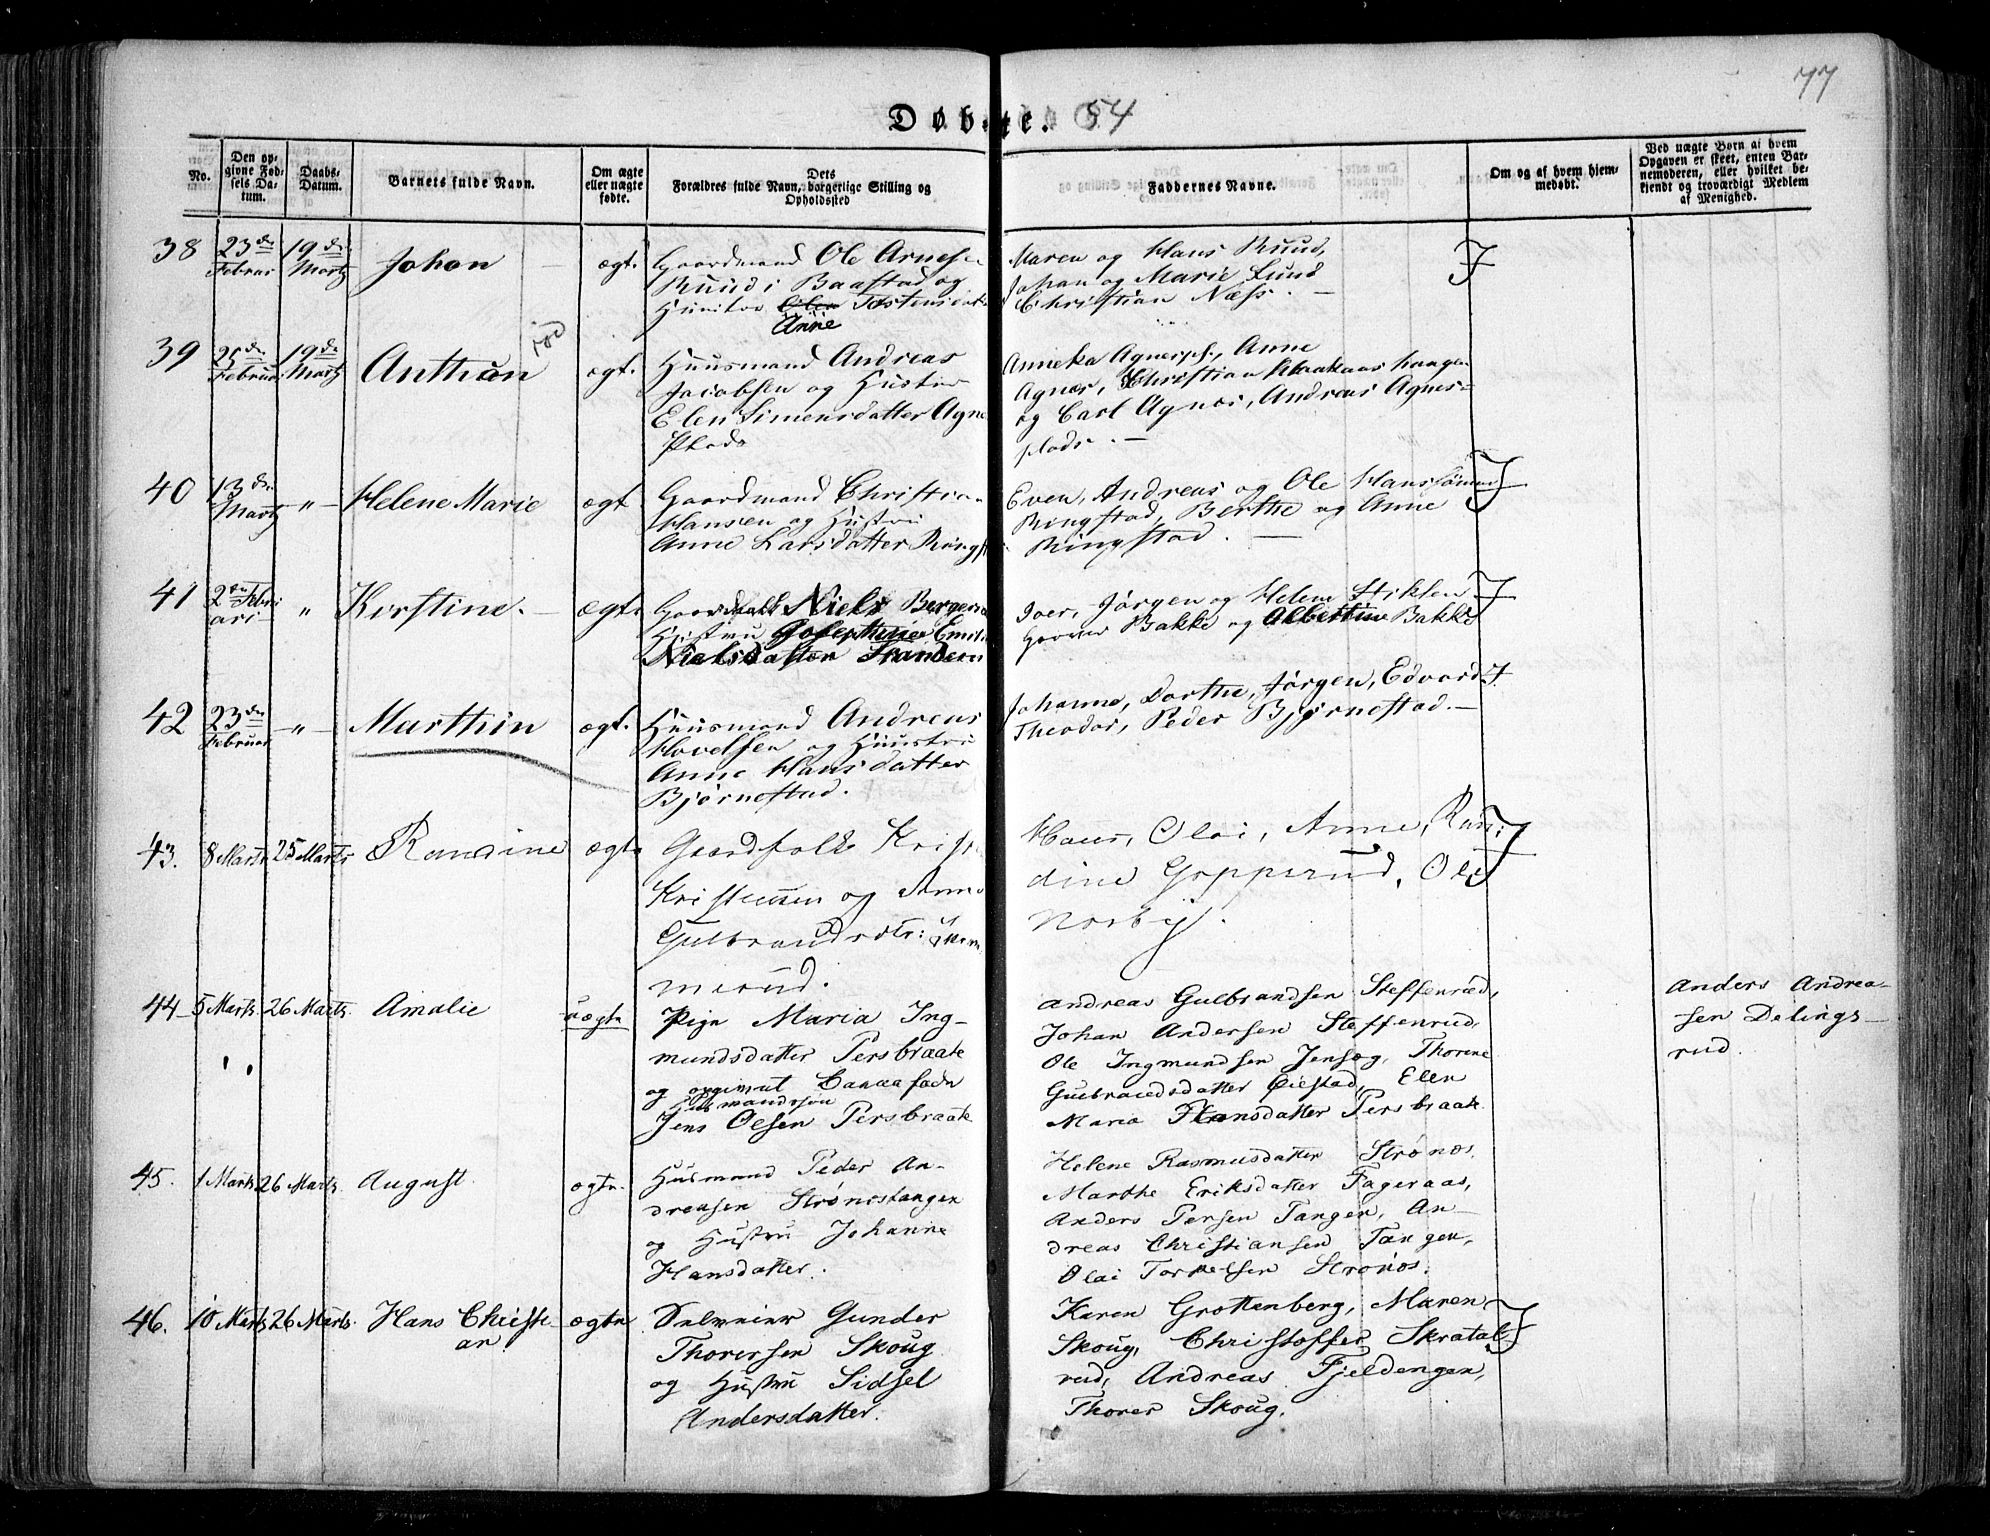 77
Døbte. 54
No.
Den opgivne Fødsels Datum.
Daabs-Datum.
Barnets fulde Navn.
Om ægte eller uægte fødte.
Dets Forældres fulde Navn, borgerlige Stilling og Opholdssted
Faddernes Navne.
Om og af hvem hjemmedøbt.
Ved uægte Børn af hvem Opgaven er skeet, enten Barnemoderen, eller hvilket bekjendt og troværdigt Medlem af Menighed.
38 23de Februar 19de Martz Johan ægt.
Gaardmand Ole Arnesen
Ruud i Baastad og
Hustro Anne Tostensdat
Maren og Hans Ruud,
Johan og Marie Lund
Christian Næss. —
39 25de Februar 19de Martz Anthon død ægt.
Huusmand Andreas
Jacobsen og Hustru
Elen Simensdatter Agnes
Plads
Anneka Agnespl., Anne
Agnæs, Christian
og Carl Agnes, Andreas Agnes-
plads. —
40 13de Martz " Helene Marie ægt.
Gaardmand Christian
Hansen og Hustru
Anne Larsdatter Ringst
Even, Andreas og Ole Hanssønner
Ringstad, Berthe og Anne
Ringstad. —
41 2den Februari " Kirstine. — ægt.
Gaardfolk Niels Bergersen
Hustru Josephine Emilie
Nielsdatter
Iver, Jørgen og Helene Stiklen
Bakke og Albertine Bakke
42 23de Februar " Marthin ægt.
Huusmand Andreas
Hovelsen og Huustru
Anne Hansdatter
Bjørnestad.
Johanne, Dorthe, Jørgen, Edvard
Theodor, Peder Bjørnestad. —
43. 8 Marts 25 Marts Randine ægte
Gaardfolk Krist
Kristensen og Anne
Gulbrandsdtr:
merud.
Hans, Olai, Anne, Ran:
dine Gopperud, Ole
Norby.
44 5 Marts 26 Marts. Amalie uægte
Pige Maria Ing-
mundsdatter Persbraate
og opgivet Barnefader
Husmandssøn
Jens Olsen Persbraate
Andreas Gulbrandsen Steffenrud,
Johan Andersen Steffenrud,
Ole Ingmundsen Thorene
Gulbrandsdatter Øiestad, Elen
Maria Hansdatter Persbraate
Anders Andrea-
sen Delings-
rud.
45. 1 Marts 26 Marts. August. ægte.
Husmand Peder An-
dreasen Strønestangen
og Hustru Johanne
Hansdatter.
Helene Rasmusdatter Strønes.
Marthe Eriksdatter Fageraas,
Anders Persen Tangen, An-
dreas Christiansen Tangen,
Olai Torkelsen Strønes.
46. 10 Marts 26 Marts. Hans Christian ægte
Selveier Gunder
Thoresen Skoug
og Hustru Sidsel
Andersdatter.
Karen Grottenberg, Maren
Skoug, Christoffer Skratal-
rud, Andreas Fjeldengen,
Thorer Skoug.